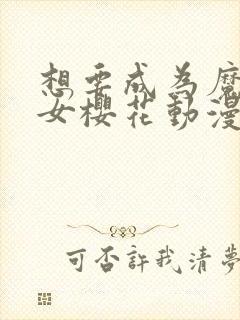 想要成为魔
女樱花動漫
可否許我清夢